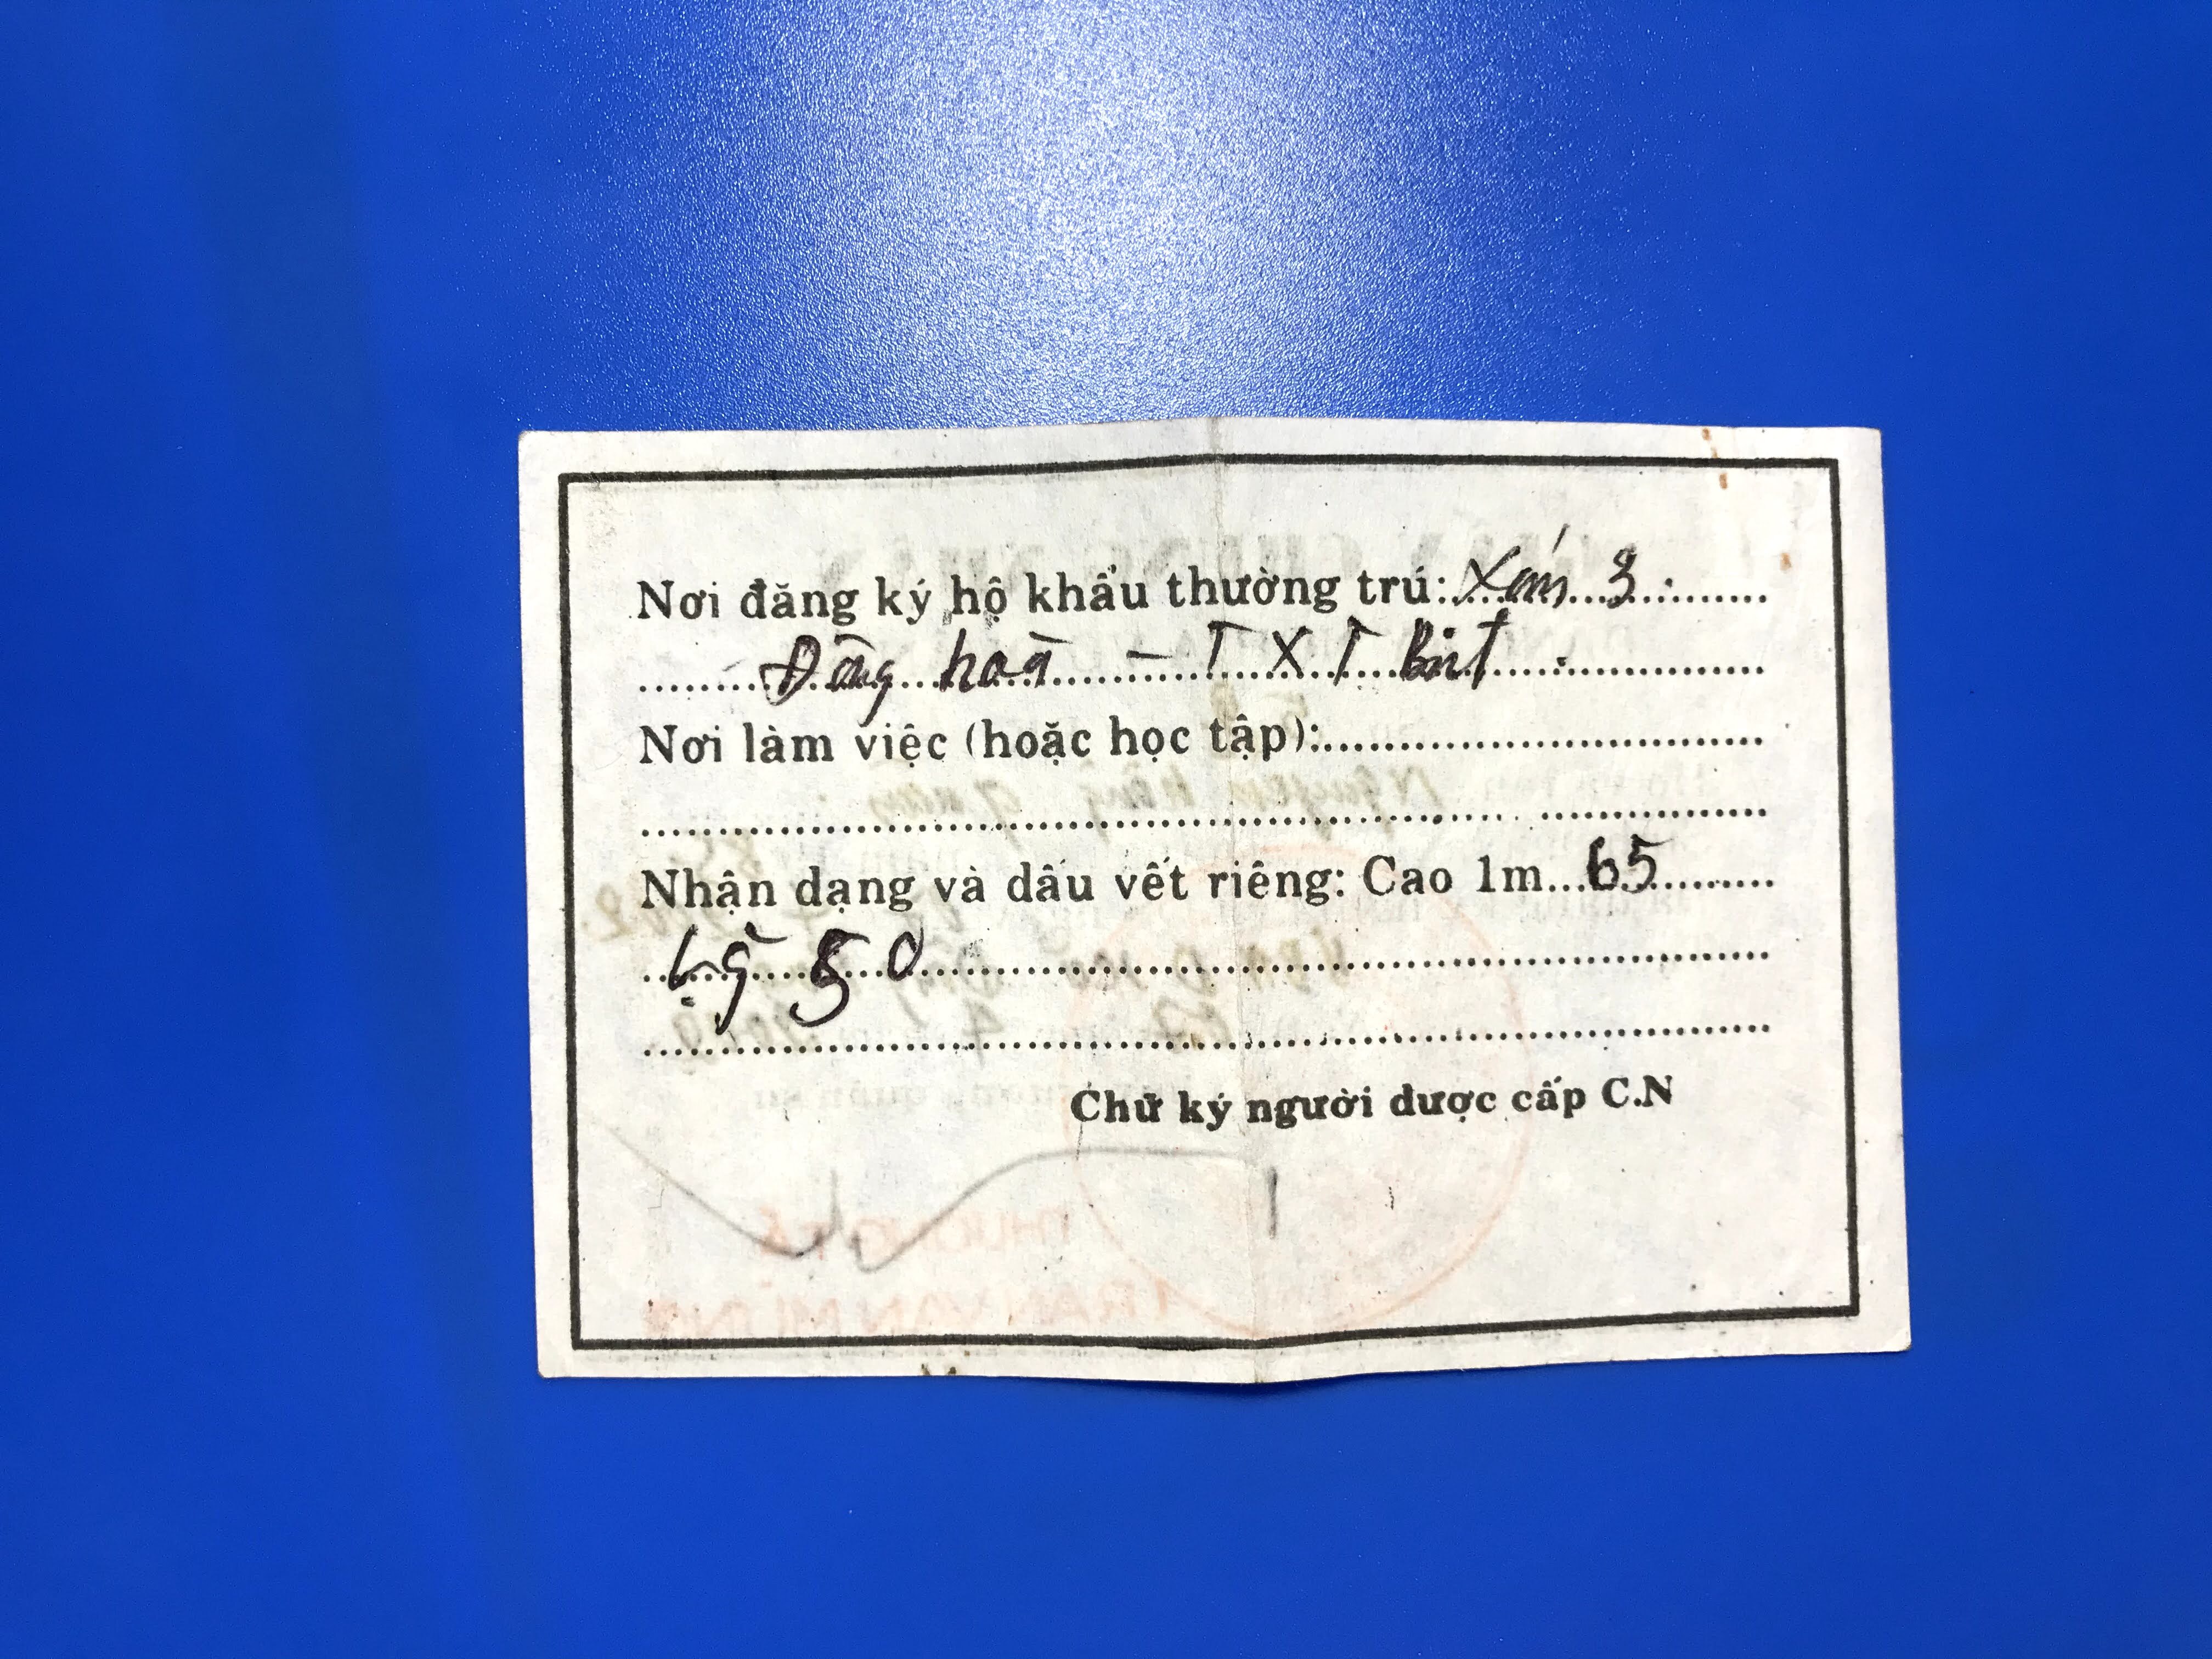 Nơi đăng ký hộ khẩu thường trú: Xóm 3
Đồng hoà - TXT
Nơi làm việc (hoặc học tập):
Nhận dạng và dấu vết riêng: Cao 1m 65
50
Chữ ký người được cấp C.N